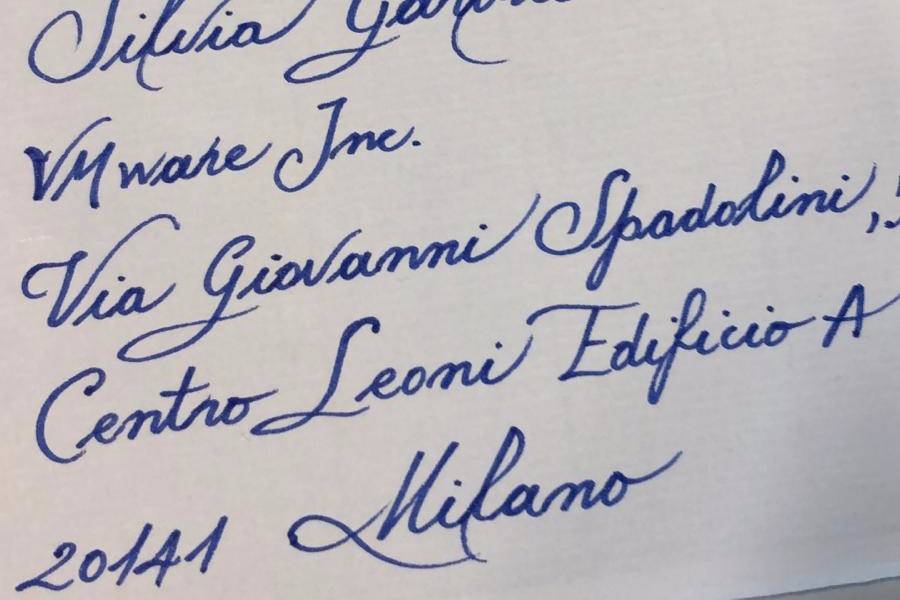 Silvia
VMware Inc.
Via Giovanni Spadolini, 5
Centro Leoni Edificio A
20141 Milano